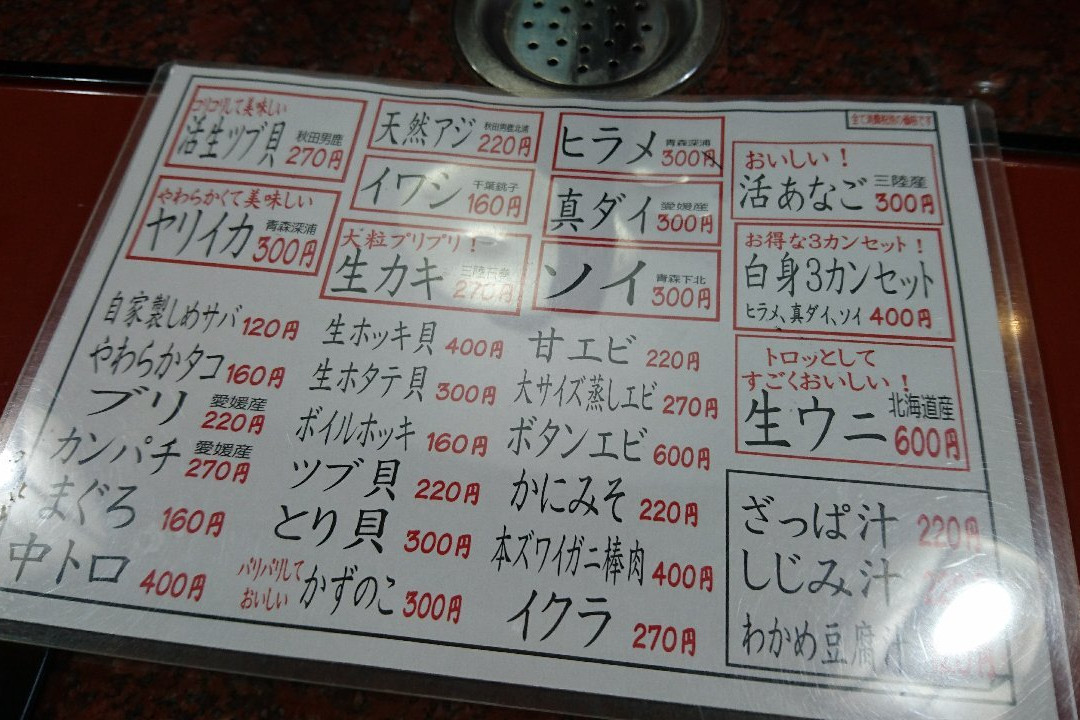 コリコリして美味しい
活生ツブ貝 秋田男鹿 270円
やわらかくて美味しい
ヤリイカ 青森深浦 300円
天然アジ 秋田男鹿北浦 220円
イワシ 千葉銚子 160円
大粒プリプリ!
生カキ 270円
ヒラメ 青森深浦 300円
真ダイ 愛媛産 300円
ソイ 青森下北 300円
全て消費税別の価格です
おいしい!
活あなご 三陸産 300円
お得な3カンセット!
白身3カンセット
ヒラメ、真ダイ、ソイ 400円
トロッとして
すごくおいしい! 北海道産
生ウニ 600円
自家製しめサバ 120円
やわらかタコ 160円
ブリ 愛媛産 220円
カンパチ 愛媛産 270円
まぐろ 160円
中トロ 400円
生ホッキ貝 400円
生ホタテ貝 300円
ボイルホッキ 160円
ツブ貝 220円
とり貝 300円
パリパリして
おいしい かずのこ 300円
甘エビ 220円
大サイズ蒸しエビ 270円
ボタンエビ 600円
かにみそ 220円
本ズワイガニ棒肉 400円
イクラ 270円
ざっぱ汁 220円
しじみ汁
わかめ豆腐汁